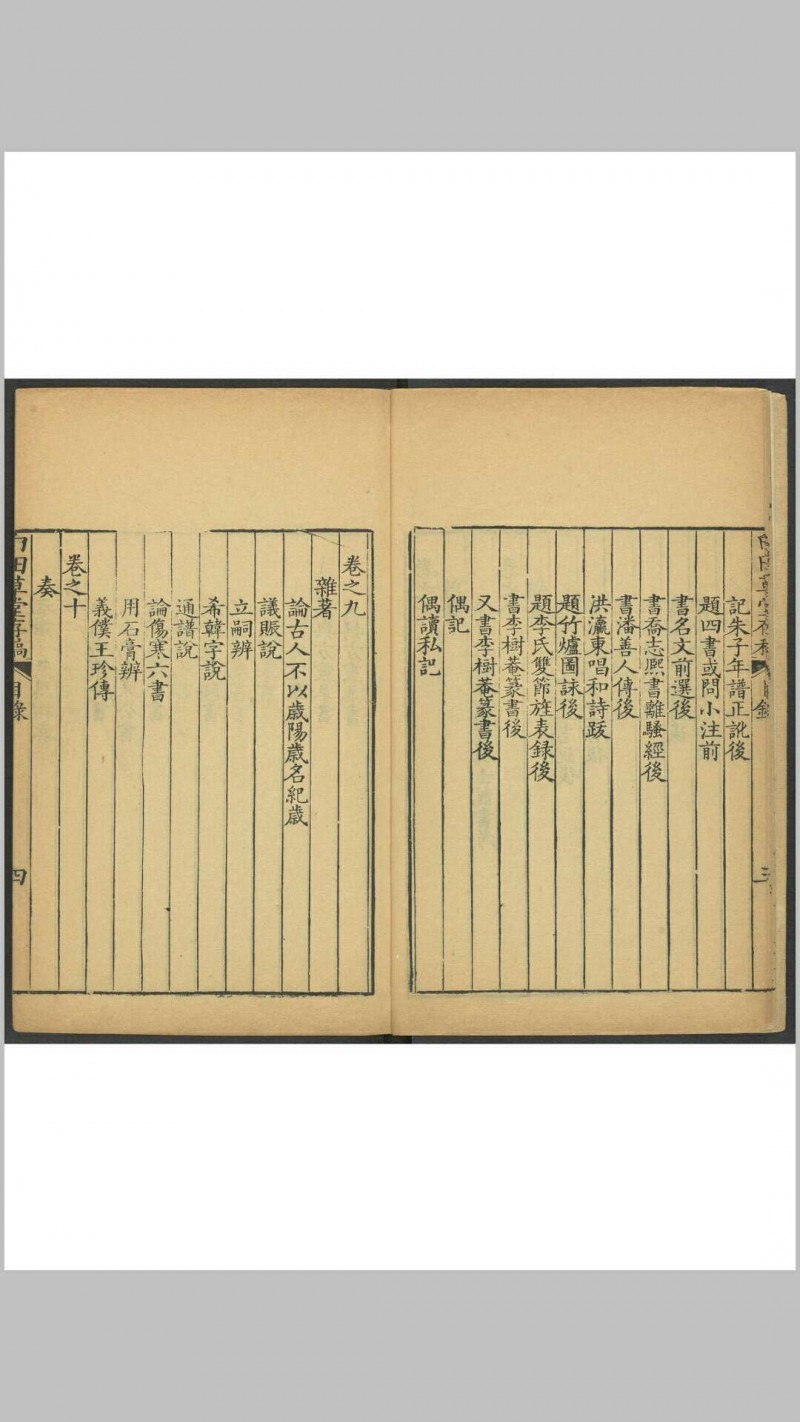 記朱子年譜正訛後
題四書或問小注前
書名文前選後
書喬志熙書離騷經後
書潘善人傳後
洪瀛東唱和詩跋
題竹爐圖詠後
題李氏雙節旌表録後
書李樹菴篆書後
又書李樹菴篆書後
偶記
偶讀私記
卷之九
雜著
論古人不以歲陽歲名紀歲
議賑說
立嗣辨
希韓字說
通譜說
論傷寒六書
用石膏辨
義僕王珍傳
卷之十
奏
田草堂存稿 目錄
四